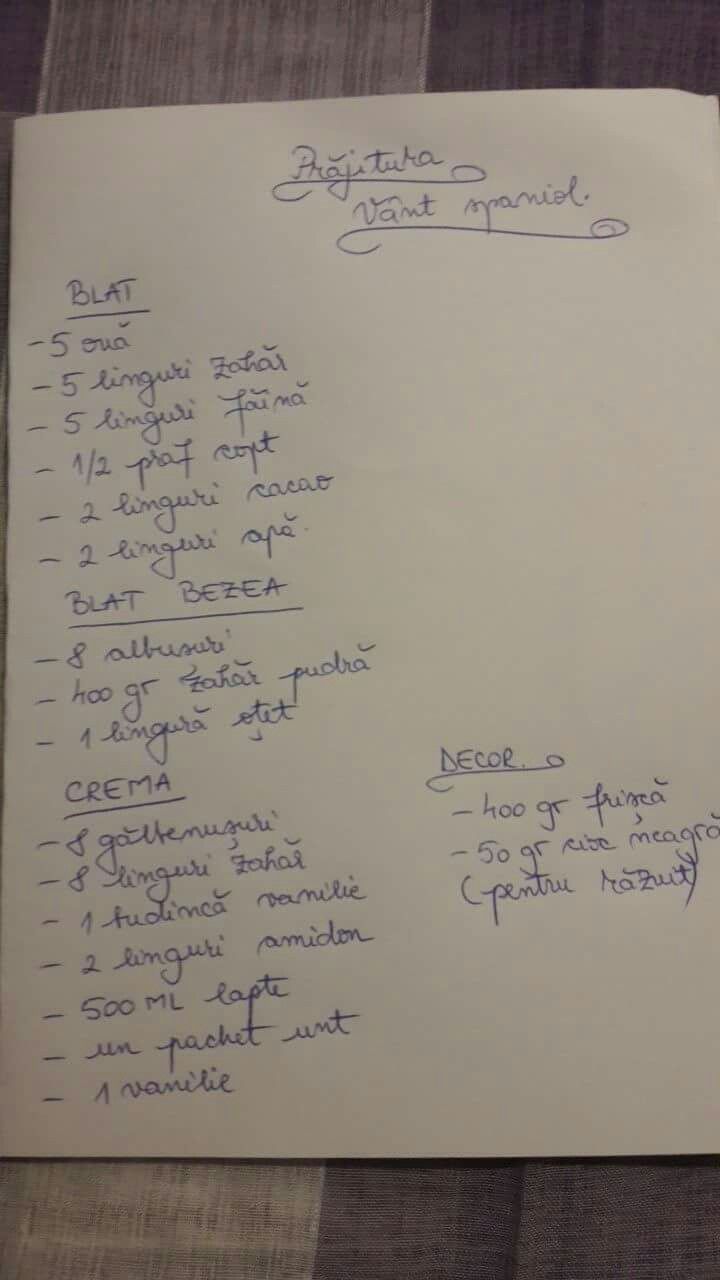 Prăjitura
Vânt spaniol.
BLAT
- 5 ouă
- 5 linguri zahăr
- 5 linguri făină
- 1/2 praf copt
- 2 linguri cacao
- 2 linguri apă.
BLAT BEZEA
- 8 albușuri
- 400 gr zahăr pudră
- 1 lingură oțet
CREMA
- 8 gălbenușuri
- 8 linguri zahăr
- 1 budincă vanilie
- 2 linguri amidon
- 500 ML lapte
- un pachet unt
- 1 vanilie
DECOR.
- 400 gr frișcă
- 50 gr cioc neagră
(pentru răzuit)